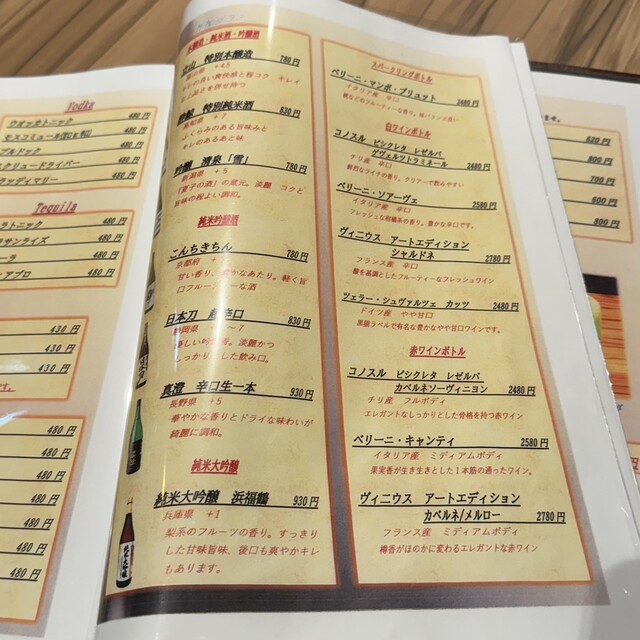 Vodka
ウォッカトニック 480円
モスコミュール 480円
ブルドック 480円
スクリュードライバー 480円
ブラッディマリー 480円
Tequila
480円
サンライズ 480円
480円
480円
430円
430円
430円
480円
480円
480円
480円
480円
480円
本醸造・純米酒・吟醸酒
立山 特別本醸造 780円
富山県 +4.5
特別純米酒 830円
高知県 +7
ふくらみのある旨味と
キレのあるあと味
吟醸 清泉「雪」 780円
新潟県 +5
「夏子の酒」の蔵元。淡麗 コクと
旨味の程よい調和。
純米吟醸
こんちきちん 780円
京都府
口フルーティーな酒
日本刀 超辛口 830円
静岡県
しっかりとした飲み口。
真澄 辛口生一本 930円
長野県 +5
華やかな香りとドライな味わいが
綺麗に調和。
純米大吟醸
純米大吟醸 浜福鶴 930円
兵庫県 +1
梨系のフルーツの香り。すっきり
した甘味旨味、後口も爽やかキレ
もあります。
スパークリングボトル
ベリーニ・マンボ・ブリュット 2480円
イタリア産 辛口
白ワインボトル
コノスル ビシクレタ レゼルバ
ゲヴュルツトラミネール 2480円
チリ産 辛口
鮮烈なライチの香り。クリアーで飲みやすい
ベリーニ・ソアーヴェ 2580円
イタリア産 辛口
フレッシュな柑橘系の香り。豊かな辛口です。
ヴィニウス アートエディション
シャルドネ 2780円
フランス産 辛口
酸を基調としたフルーティーなフレッシュワイン
ツェラー・シュヴァルツェ カッツ 2480円
ドイツ産 やや甘口
黒猫ラベルで有名な豊かなやや甘口ワインです。
赤ワインボトル
コノスル ビシクレタ レゼルバ
カベルネソーヴィニヨン 2480円
チリ産 フルボディ
エレガントなしっかりとした骨格を持つ赤ワイン
ベリーニ・キャンティ 2580円
イタリア産 ミディアムボディ
果実香が生き生きとした1本筋の通ったワイン。
ヴィニウス アートエディション
カベルネ/メルロー 2780円
フランス産 ミディアムボディ
樽香がほのかに変わるエレガントな赤ワイン
ます。
620円
800円
700円
600円
800円